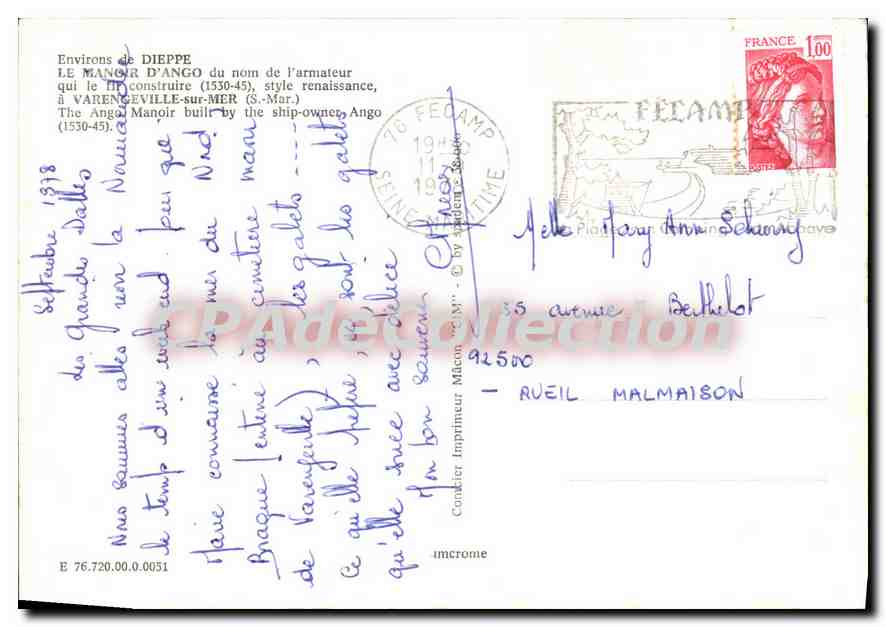 Environs de DIEPPE
LE MANOIR D'ANGO du nom de l'armateur
qui le fit construire (1530-45), style renaissance,
à VARENGEVILLE-sur-MER (S.-Mar.)
The Ango Manoir built by the ship-owner Ango
(1530-45).
Septembre 1978
Les grandes Dalles
Nous sommes allés voir la Normandie
le temps d'un week end pour que
Marie connaisse la mer du Nord,
Braque (enterré au cimetière marin
de Varengeville), les galets -----
Ce qu'elle préfère, ce sont les galets
qu'elle suce avec délice
Mon bon souvenir
E 76.720.00.0.0051
Combier Imprimeur Mâcon "CIM" - © by spadem
imcrome
76 FECAMP
SEINE MARITIME
FECAMP
FRANCE 1,00
POSTES
Melle Mary Ann
35 avenue Berthelot
92500
- RUEIL MALMAISON
CPAdeCollection